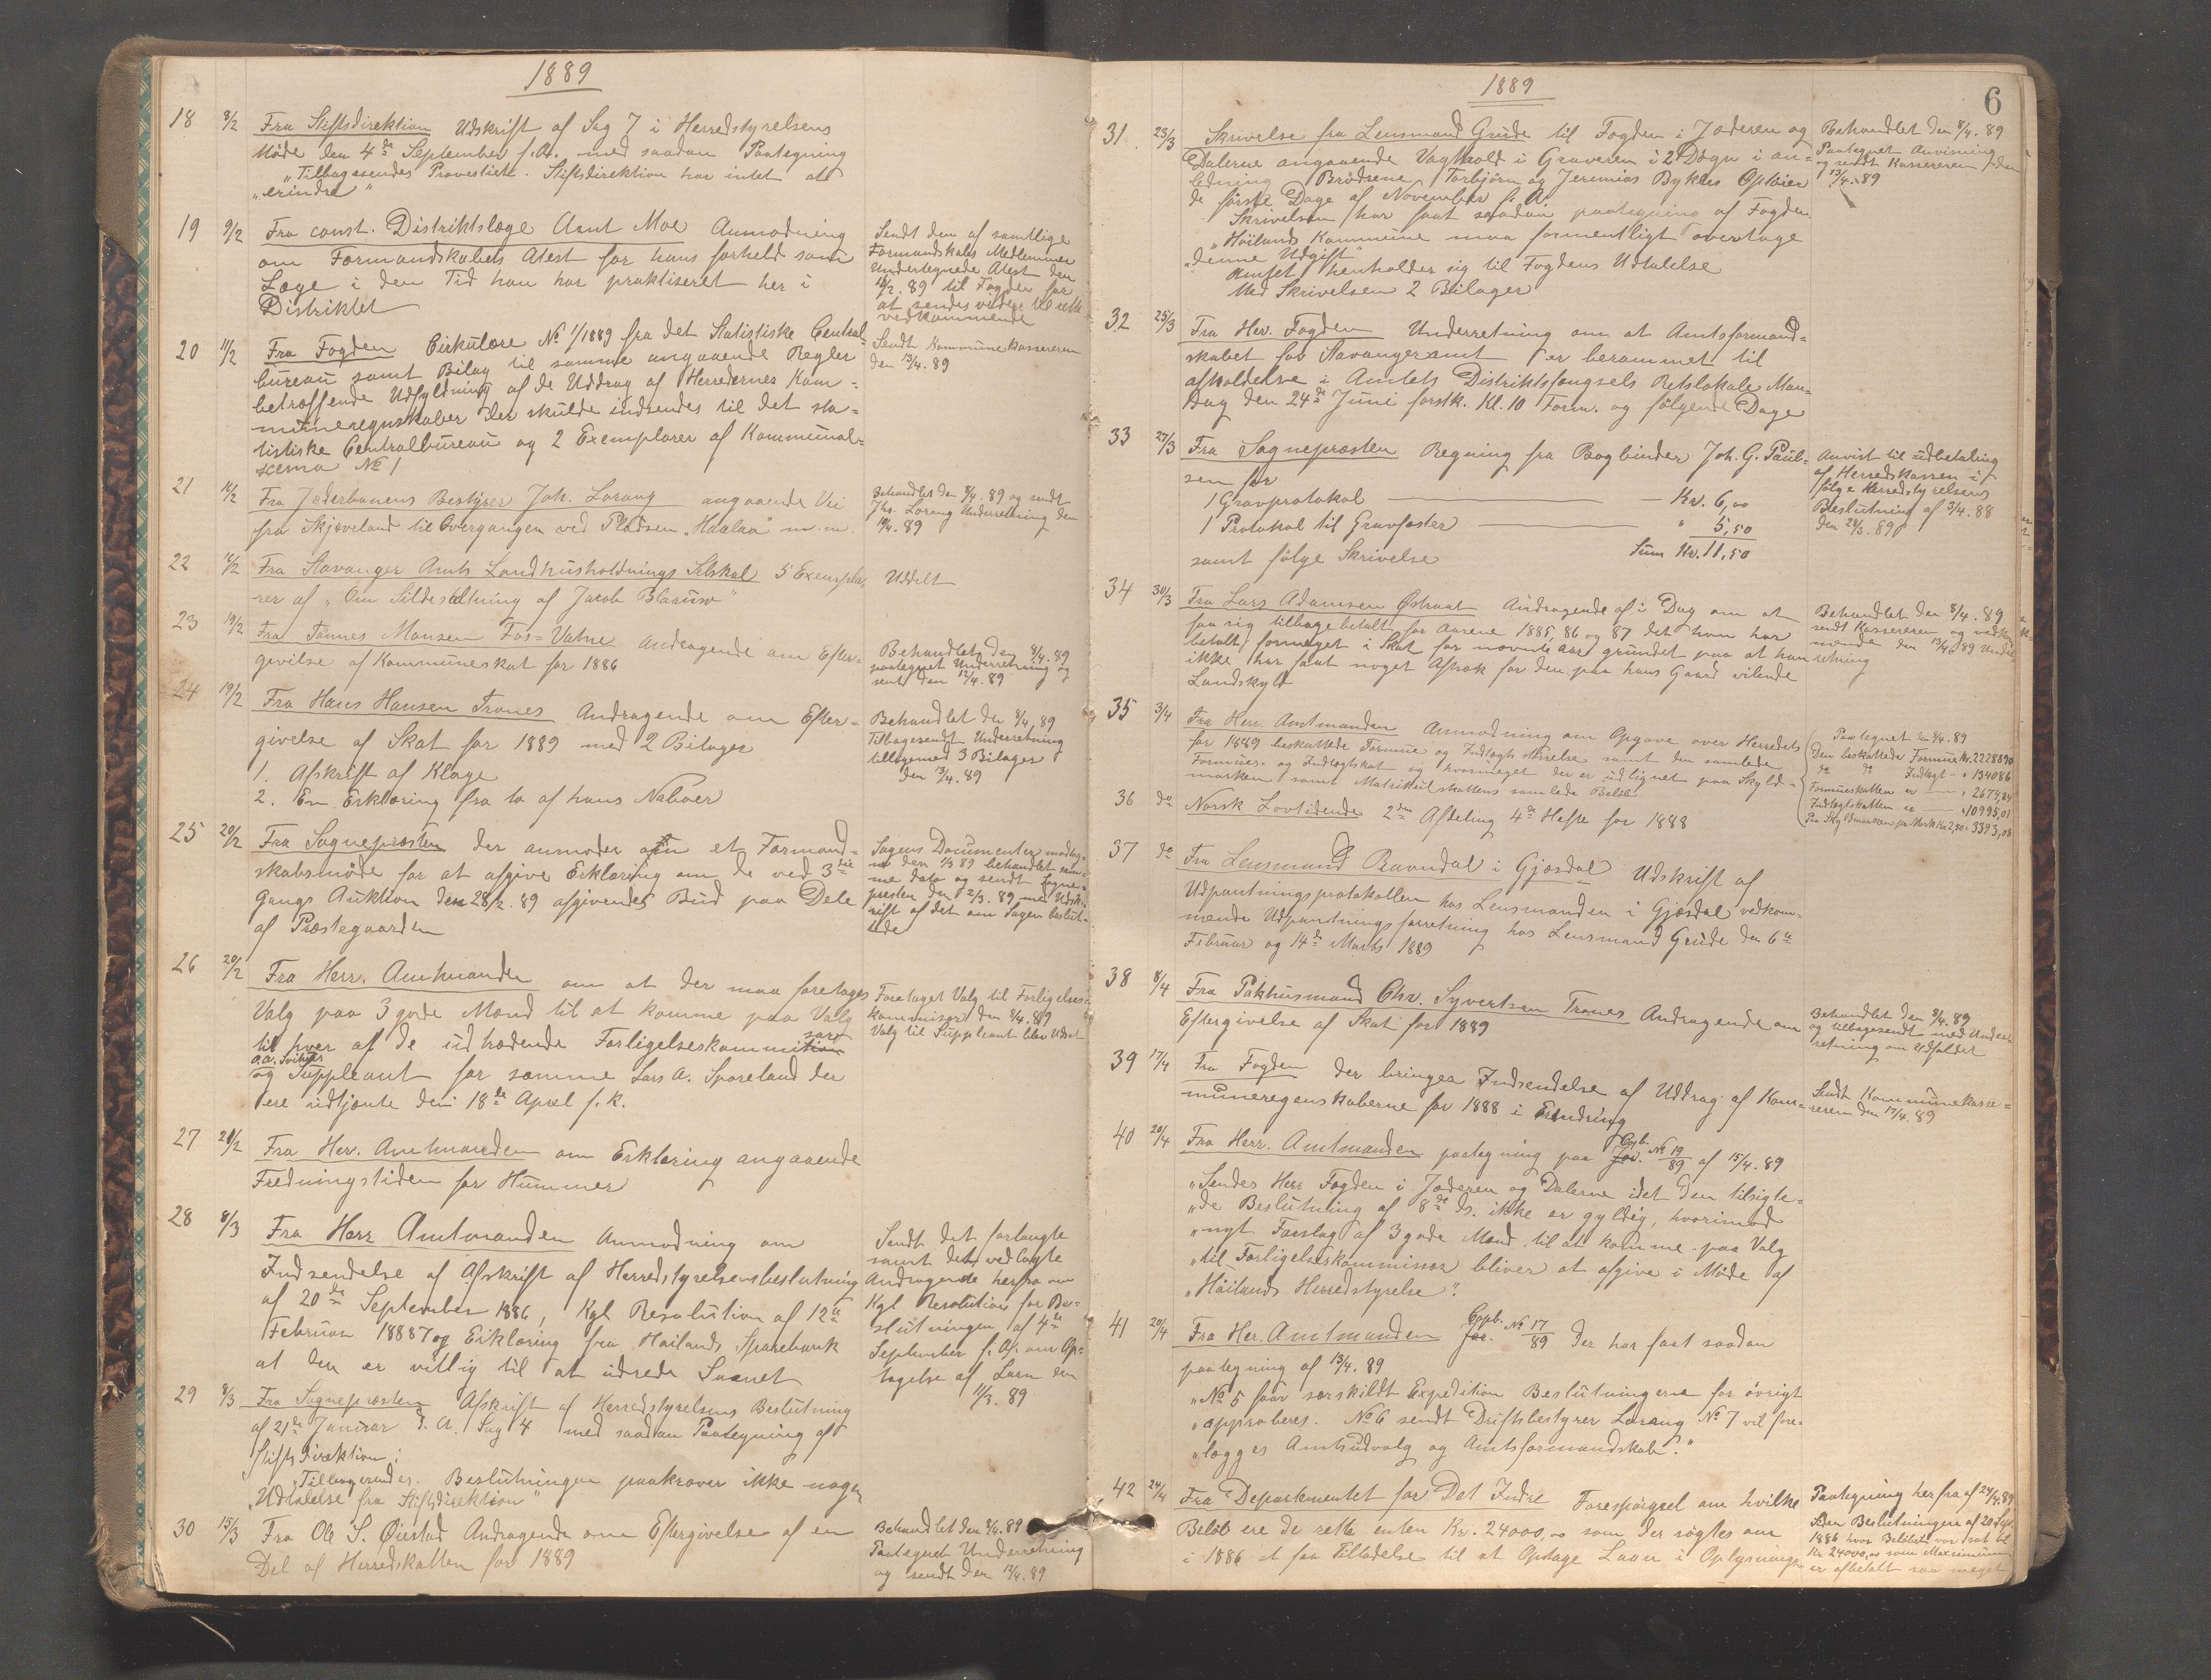 1889
18 8/2 Fra Stiftsdirektion Udskrift af Sag 7 i Herredstyrelsens
Møde den 4de September f.A. med saadan Paategning
"Tilbagesendes Provestiet. Stiftsdirektion har intet at
"erindre"
19 9/2 Fra const. Distriktslæge Arnt Moe Anmodning
om Formandskabets Atest for hans forhold som
Læge i den Tid han har praktiseret her i
Distriktet
Sendt den af samtlige
Formandskabs Medlemmer
Undertegnede Atest den
89 til Fogden for
at sendes videre til rette
vedkommende
20 11/2 Fra Fogden Cirkulære No 1/1889 fra det Statistiske Central-
bureau samt Bilag til samme angaaende Regler
betræffende Udfyldning af de Uddrag af Herredernes Kom-
muneregnskaber der skulde indsendes til det sta-
tistiske Centralbureau og 2 Exemplarer af Kommunal-
scema No 1
Sendt Kommunekassereren
den 13/4. 89
21 16/2 Fra Jæderbanens Bestyrer Joh. Lorang angaaende Vei
fra Skjæveland til Overgangen ved Pladsen "Haalaa" m.m.
Behandlet den 8/4. 89 og sendt
Jhs. Lorang Underretning den
89
22 16/2 Fra Stavanger Amts Landhusholdnings Selskab 5 Exempla
rer af "Om Sildesaltning af Jacob Blaauw"
Uddelt
23 19/2 Fra Tønnes Monsen Fos=Vatne andragende om Efter-
givelse af Kommuneskat for 1886
Behandlet den 8/4. 89
paategnet Underretning og
sendt den 12/4. 89
24 19/2 Fra Hans Hansen Trones Andragende om Efter-
givelse af Skat for 1889 med 2 Bilager
1. Afskrift af Klage
2. En Erklæring fra to af hans Naboer
Behandlet den 8/4. 89
Tilbagesendt Underretning
tilligemed 3 Bilager
den 13/4. 89
25 20/2 Fra Sognepræsten der anmoder om et Formand-
skabsmøde for at afgive Erklæring om de ved 3die
Gangs Auktion den 28/2. 89 afgivendes Bud paa Dele
af Præstegaarden
Sagens Documenter modtag-
ne den 1/3 89 behandlet sam-
me dato og sendt Sogne-
presten den 2/3. 89 med Udsk-
rift af det om Sagen beslut-
tede
26 20/2 Fra Herr. Amtmanden om at der maa foretages
Valg paa 3 gode Mænd til at komme paa Valg
til hver af de udtrædende Forligelseskommission
O.A. Svihus
og Suppleant for samme Lars A. Sporeland der
ere udtjente den 18de April f.k.
Foretaget Valg til Forligelses-
kommissær den 8/4. 89
Valg til Suppleant blev Udsat
27 21/2 Fra Her. Amtmanden om Erklæring angaaende
Fredningstiden for Hummer
28 8/3 Fra Herr Amtmanden Anmodning om
Indsendelse af Afskrift af Herredstyrelsensbeslutning
af 20de September 1886, Kgl Resolution af 12te
Februar 18887 og Erklæring fra Høilands Sparebank
at den er villig til at udrede Laanet
Sendt det forlangte
samt det vedlagte
Andragende herfra om
Kgl Resolution for Be-
slutningen af 4de
September f.A. om Op-
tagelse af Laan den
11/3. 89
29 8/3 Fra Sognepræsten Afskrift af Herredstyrelsens Beslutning
af 21de Januar d. A. Sag 4 med saadan Paategning af
Stiftsdirektion;
"Tilbagesendes. Beslutningen paakræver ikke nogen
"Udtalelse fra Stiftsdirektion"
30 15/3 Fra Ole S. Øiestad Andragende om Eftergivelse af en
Del af Herredskatten for 1889
Behandlet den 8/4. 89
Paategnet Underretning
og sendt den 12/4. 89
1889
6
31 23/3 Skrivelse fra Lensmand Grude til Fogden i Jæderen og
Dalerne angaaende Vagthold i Graveren i 2 Døgn i an-
ledning Brødrene Torbjørn og Jeremias Bykles Ophold
de første Dage af November f. A.
Skrivelsen har faat saadan paategning af Fogden
"Høilands Kommune maa formentligt overtage
"denne Udgift"
Amtet henholder sig til Fogdens Udtalelse
Med Skrivelsen 2 Bilager
Behandlet den 8/4. 89
Paategnet Anvisning
og sendt Kassereren den
13/4. 89
32 25/3 Fra Her. Fogden Underretning om at Amtsformand-
skabet for Stavanger amt er berammet til
afholdelse i Amtets Distriktsfængsels Retslokale Man-
dag den 24de Juni førstk. Kl. 10 Form. og følgende Dage
33 27/3 Fra Sognepræsten Regning fra Bogbinder Joh. G. Paul-
sen for
1 Gravprotokol Kr. 6,00
1 Protokol til Gravfæster " 5,50
samt følge Skrivelse Sum Kr. 11,50
Anvist til udbetaling
af Herredskassen i
følge Herredstyrelsens
Beslutning af 3/4. 88
den 28/3. 89
34 30/3 Fra Lars Adamsen Østraat Andragende af i Dag om at
faa sig tilbagebetalt for Aarene 1885, 86 og 87 det han har
betalt formeget i Skat for nævnte Aar grundet paa at han
ikke har faat noget Afslag for den paa hans Gaard vilende
Landskyld
Behandlet den 8/4. 89
sendt Kassereren og vedkom-
mende den 13/4. 89 Under
retning
35 3/4 Fra Herr. Amtmanden Anmodning om Opgave over Herredets
for 1889 beskattede Formue og Indtægts størrelse samt den samlede
Formues- og Indtægtskat og hvormeget der er udlignet paa Skyld-
marken samt Matrikulskattens samlede Beløb
Paategnet den 8/4. 89
Den beskattede Formue Kr. 2228890
do do Indtægt - " 134086
Formueskatten er " 2674,24
Indtægtskatten er " 10995,01
Paa Skyldmarken pr. Mark Kr 2,50 = 3393,08
36 do Norsk Lovtidende 2den Afdeling 4de Hefte for 1888
37 do Fra Lensmand Ravndal i Gjæsdal Udskrift af
Udpantningsprotokollen hos Lensmanden i Gjæsdal vedkom-
mende Udpantningsforretning hos Lensmand Grude den 6te
Februar og 14de Marts 1889
38 8/4 Fra Pakhusmand Chr. Syvertsen Trones Andragende om
Eftergivelse af Skat for 1889
Behandlet den 8/4. 89
og tilbagesendt med Under-
retning om Udfaldet
39 17/4 Fra Fogden der bringer Indsendelse af Uddrag af Kom-
muneregnskaberne for 1888 i Erindring
Sendt Kommunekasse-
reren den 17/4. 89
40 20/4 Fra Herr. Amtmanden paategning paa Jor. Copb. No 19/89 af 15/4. 89
"Sendes Herr Fogden i Jæderen og Dalerne idet den tilsigte-
"de Beslutning af 8de ds. ikke er gyldig, hvorimod
"nyt Forslag af 3 gode Mænd til at komme paa Valg
"til Forligelseskommissær bliver at afgive i Møde af
"Høilands Herredstyrelse".
41 20/4 Fra Her. Amtmanden Jor. Copb. No 17/89 der har faat saadan
paategning af 13/4. 89
"No 5 faar særskildt Expedition Beslutningerne for øvrigt
"approberes. No 6 sendt Driftsbestyrer Lorang No 7 vil fore-
"lægges Amtsudvalg og Amtsformandskab."
42 24/4 Fra Departementet for Det Indre Forespørgsel om hvilke
Beløb ere de rette enten Kr. 24000,00 som der søgtes om
i 1886 at faa Tilladelse til at Optage Laan i Oplysnings-
Paategning herfra af 24/4. 89
Siden Beslutningen af 20 Sept
1886 hvor Beløbet var sat til
Kr 24000,00 som Maximum
er afbetalt saa meget